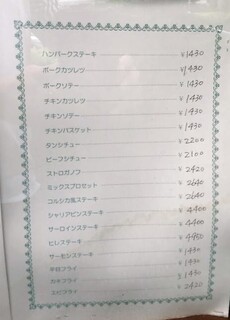 ハンバークステーキ ¥1430
ポークカツレツ ¥1430
ポークソテー ¥1430
チキンカツレツ ¥1430
チキンソテー ¥1430
チキンバスケット ¥1430
タンシチュー ¥2200
ビーフシチュー ¥2100
ストロガノフ ¥2420
ミックスブロセット ¥2640
コルシカ風ステーキ ¥2640
シャリアピンステーキ ¥4400
サーロインステーキ ¥4400
ヒレステーキ ¥4950
サーモンステーキ ¥1430
キロフライ ¥1430
カキフライ ¥1430
エビフライ ¥2420